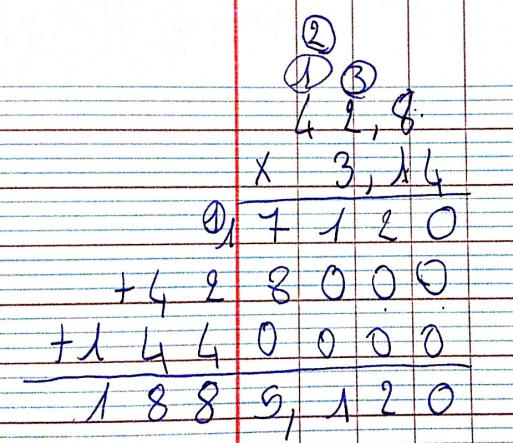 ②
① ③
4 2,8
x 3,14
① 1 7 1 2 0
+ 4 2 8 0 0 0
+ 1 4 4 0 0 0 0
1 8 8 5, 1 2 0